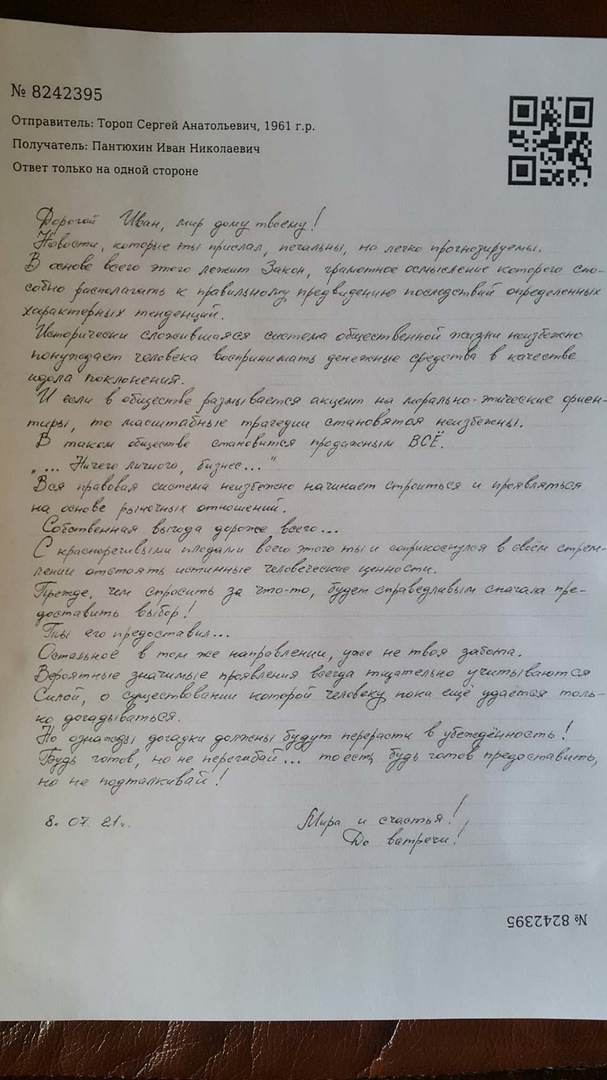 № 8242395
Отправитель: Тороп Сергей Анатольевич, 1961 г.р.
Получатель: Пантюхин Иван Николаевич
Ответ только на одной стороне
Дорогой Иван, мир дому твоему!
Новости, которые ты прислал, печальны, но легко прогнозируемы.
В основе всего этого лежит Закон, грамотное осмысление которого спо-
собно располагать к правильному предвидению последствий определенных
характерных тенденций.
Исторически сложившаяся система общественной жизни неизбежно
понуждает человека воспринимать денежные средства в качестве
идола поклонения.
И если в обществе размывается акцент на морально-этические ориен-
тиры, то масштабные трагедии становятся неизбежны.
В таком обществе становится продажным ВСЁ.
„... Ничего личного, бизнес..."
Вся правовая система неизбежно начинает строиться и проявляться
на основе рыночных отношений.
Собственная выгода дороже всего...
С красноречивыми плодами всего этого ты и соприкоснулся в своём стрем-
лении отстоять истинные человеческие ценности.
Прежде, чем спросить за что-то, будет справедливым сначала пре-
доставить выбор!
Ты его предоставил...
Остальное в том же направлении, уже не твоя забота.
Вероятные значимые проявления всегда тщательно учитываются
Силой, о существовании которой человеку пока ещё удаётся толь-
ко догадываться.
Но однажды догадки должны будут перерасти в убеждённость!
Будь готов, но не перегибай... то есть, будь готов предоставить,
но не подталкивай!
8. 07. 21г.
Мира и счастья!
До встречи!
№ 8242395